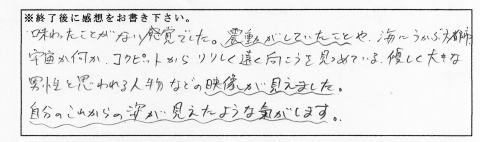 ※終了後に感想をお書き下さい。
味わったことがない感覚でした。震動がしていたことや、海にうかぶ古都市
宇宙か何か、コクピットからりりしく遠く向こうを見つめている、優しく大きな
男性と思われる人物などの映像が見えました。
自分のこれからの姿が見えたような気がします。